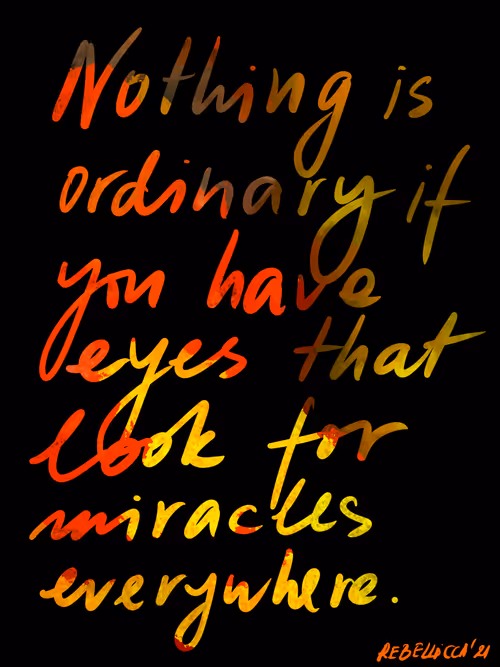 Nothing is
ordinary if
you have
eyes that
look for
miracles
everywhere.
REBELLOCCA'21